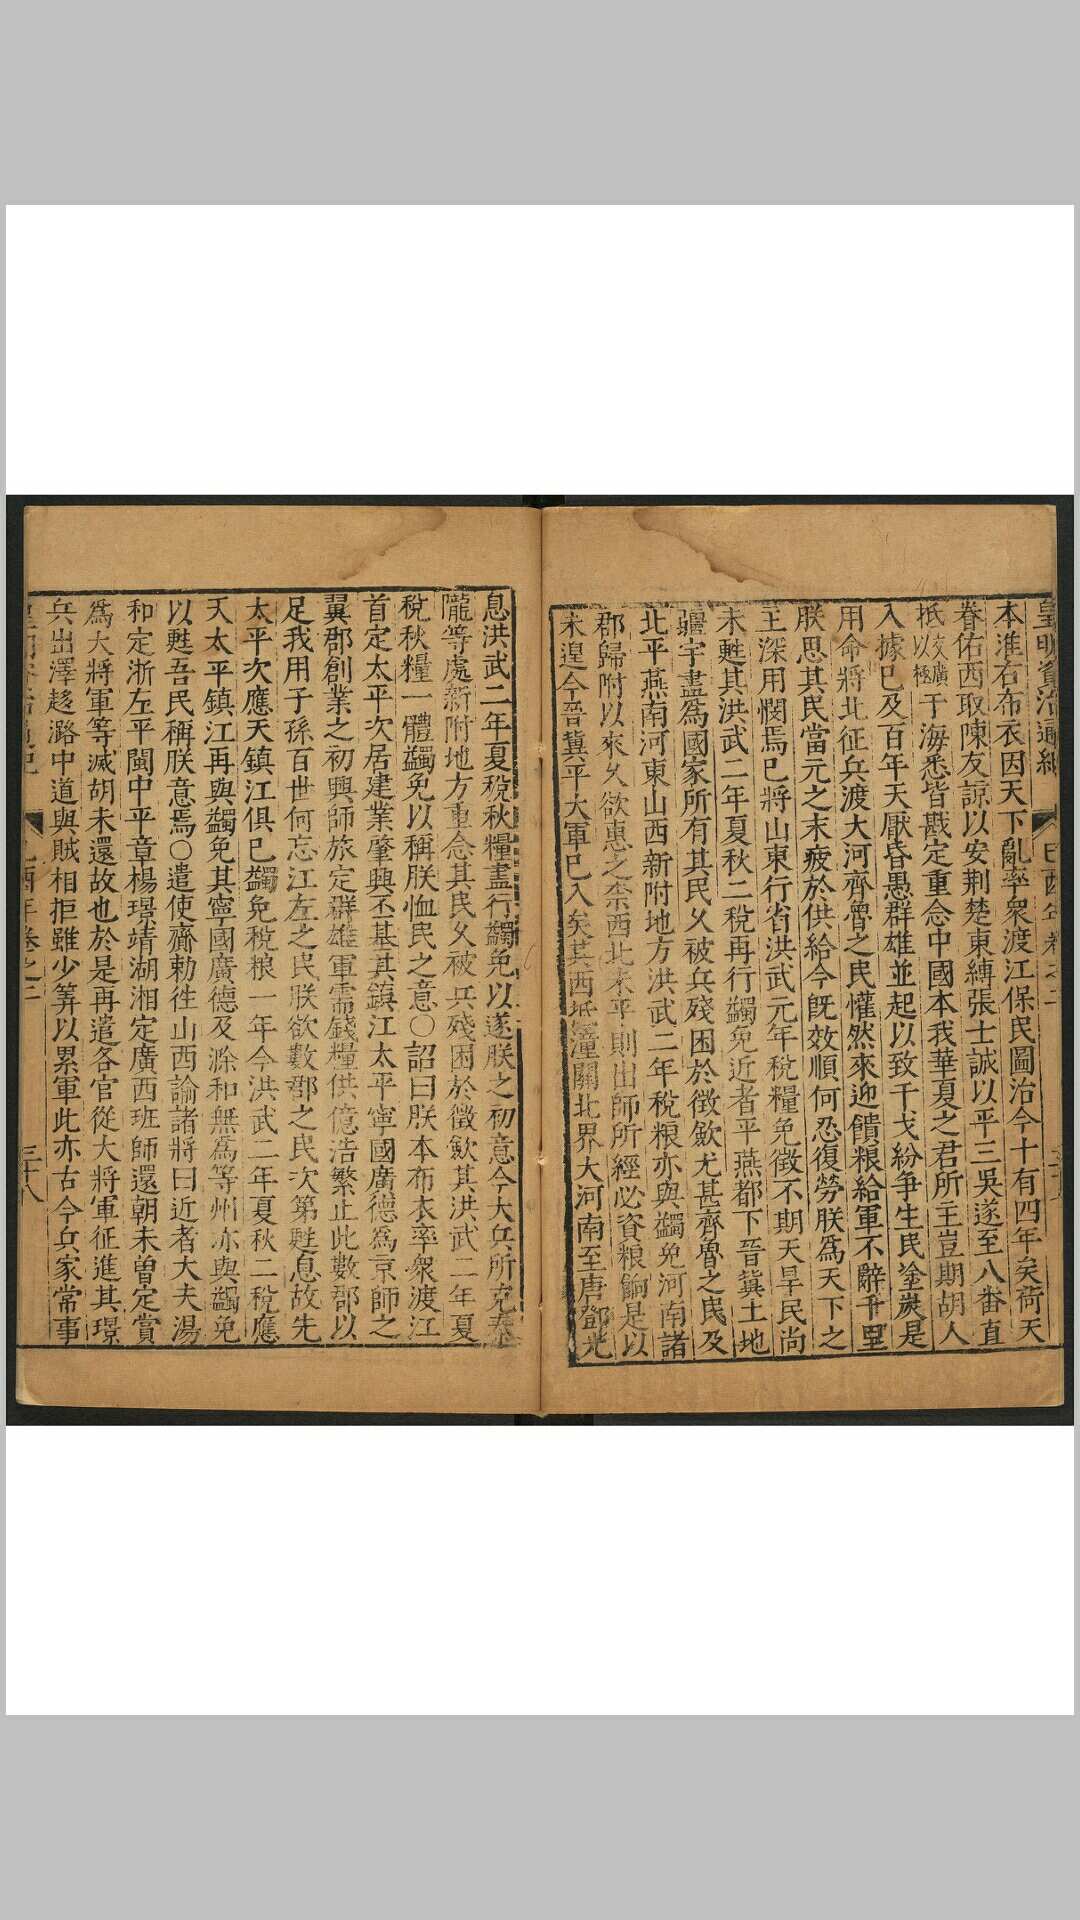 本淮右布衣因天下亂率衆渡江保民圖治今十有四年矣荷天
眷佑西取陳友諒以安荆楚東縛張士誠以平三吳遂至八番直
抵以交廣極于海悉皆戡定重念中國本我華夏之君所主豈期胡人
入據已及百年天厭昏愚群雄並起以致干戈紛爭生民塗炭是
用命將北征兵渡大河齊魯之民懽然來迎饋粮給軍不辭千里
朕思其民當元之末疲於供給今既效順何忍復勞朕爲天下之
主深用憫焉已將山東行省洪武元年稅糧免徵不期天旱民尚
未甦其洪武二年夏秋二稅再行蠲免近者平燕都下晉冀土地
疆宇盡爲國家所有其民乆被兵殘困於徴歛尤甚齊魯之民及
北平燕南河東山西新附地方洪武二年稅粮亦與蠲免河南諸
郡歸附以來乆欲惠之柰西北未平則出師所經必資粮餉是以
未遑今晉冀平大軍已入矣其西抵潼關北界大河南至唐鄧光
息洪武二年夏稅秋糧盡行蠲免以遂朕之初意今大兵所克秦
隴等處新附地方重念其民乆被兵殘困於徵歛其洪武二年夏
稅秋糧一體蠲免以稱朕恤民之意○詔曰朕本布衣率衆渡江
首定太平次居建業肇興丕基其鎮江太平寧國廣德爲京師之
翼郡創業之初興師旅定群雄軍需錢糧供億浩繁止此數郡以
足我用子孫百世何忘江左之民朕欲數郡之民次第甦息故先
太平次應天鎮江俱已蠲免稅粮一年今洪武二年夏秋二稅應
天太平鎮江再與蠲免其寧國廣德及滁和無爲等州亦與蠲免
以甦吾民稱朕意焉○遣使齎勅徃山西諭諸將曰近者大夫湯
和定浙左平閩中平章楊璟靖湖湘定廣西班師還朝未曾定賞
爲大將軍等滅胡未還故也於是再遣各官從大將軍征進其璟
兵出澤趍潞中道與賊相拒雖少筭以累軍此亦古今兵家常事
三十八